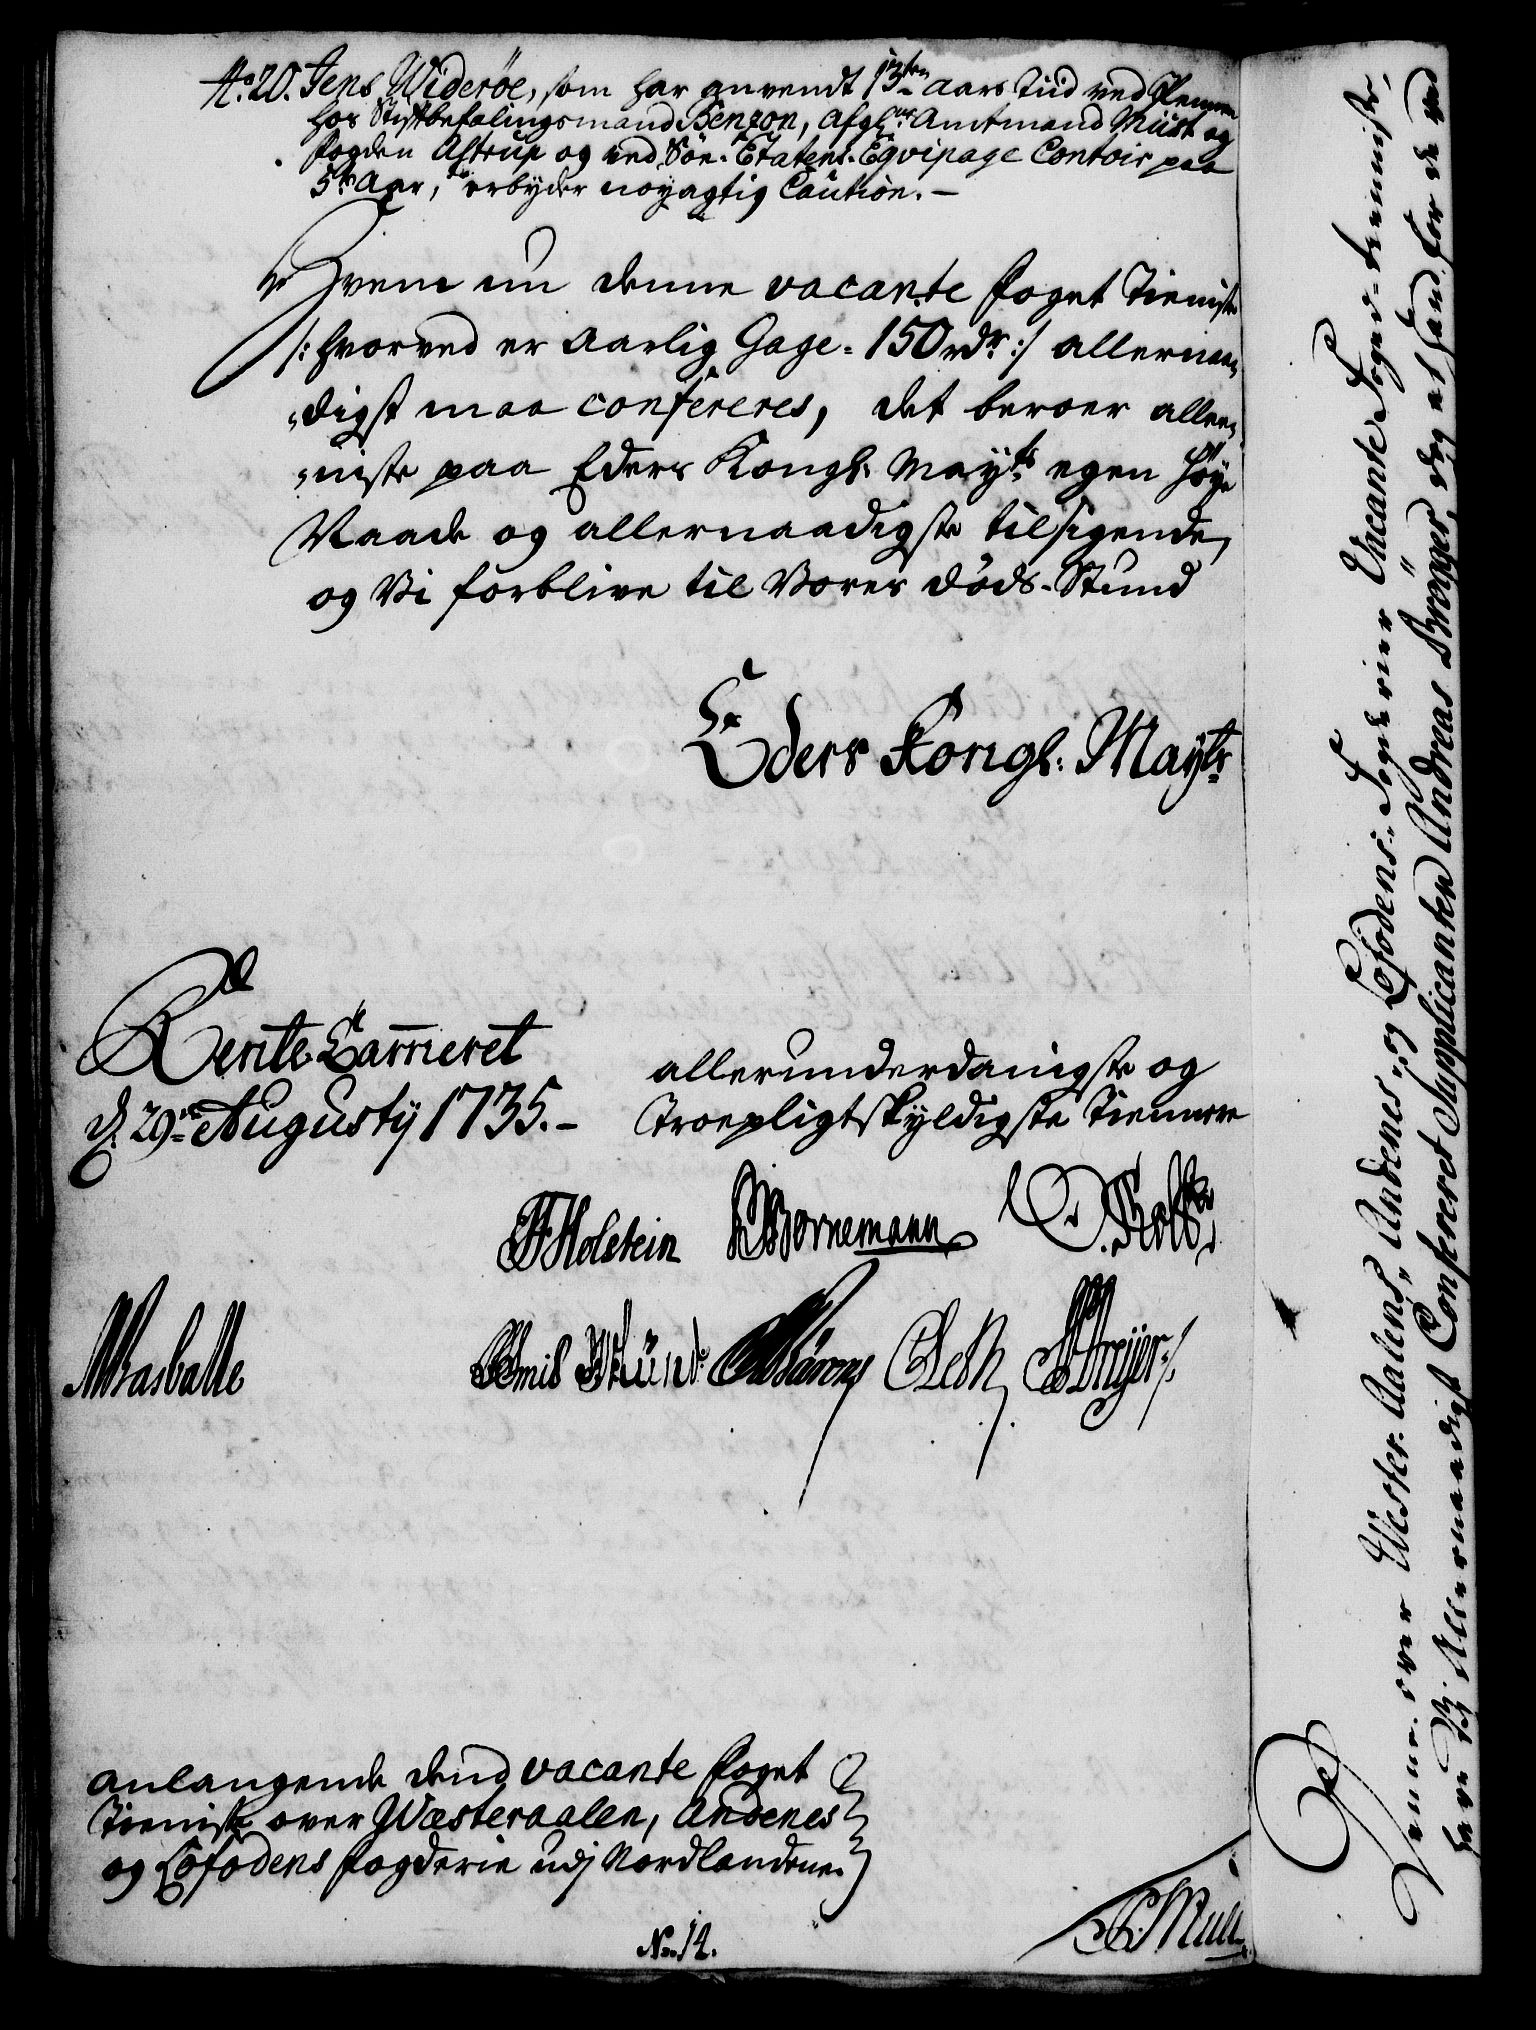 No. 20. Jens Widerøe, som har anvendt 13ten aars Tiid ved Pennen
hos Stiftbefalingsmand Benzon, Afg: Amtmand Must og
fogden Astrup og ved Søe-Etatens Eqvipage Contoir paa
5te Aar, erbyder noyagtig Caution.-
Hvem nu denne vacante foget Tieniste
/: hvorved er aarlig Gage 150 rdr :/ allernaa-
digst maa confereres, det beroer allee-
niste paa Eders Kongl: Mayts egen høye
Naade og allernaadigste tilsigende,
og Vi forblive til Vores døds-Stund
Eders Kongl: Mayts
Rente Cammeret
d. 29de Augusty 1735.-
allerunderdanigste og
Troepligtskyldigste Tiennere
Holstein Bornemann
anlangende dend vacante foget
Tieniste over Wæsteraalen, Andenes
og Lofodens fogderie udj Nordlandene.
No. 14.
Denne over Wester-Aalens, Andenes, og Lofodens Fogderier Vacante Foged-tienniste,
have Vj Allernaadigst Confereret Supplicanten Andreas Brøgger, dog at hand for de ved